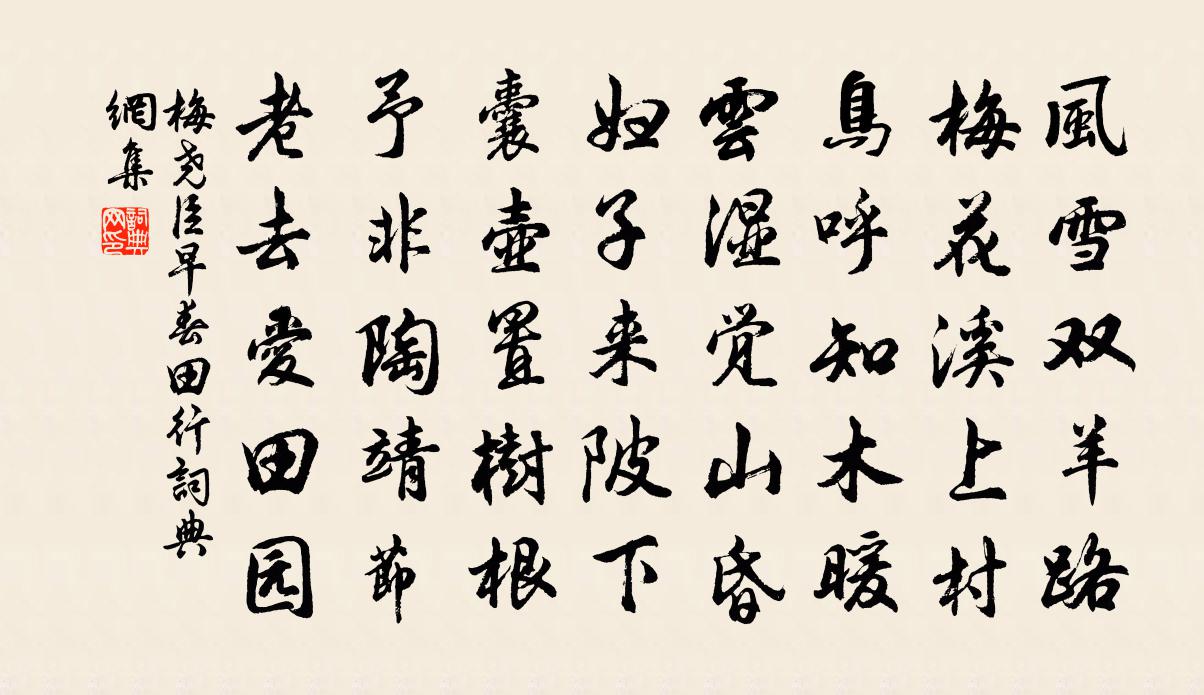 風雪双羊路
梅花溪上村
鳥呼知木暖
雲湿觉山昏
妇子来陂下
囊壺置樹根
予非陶靖節
老去愛田园
梅尧臣早春田行詞典
網集
詞典
网印